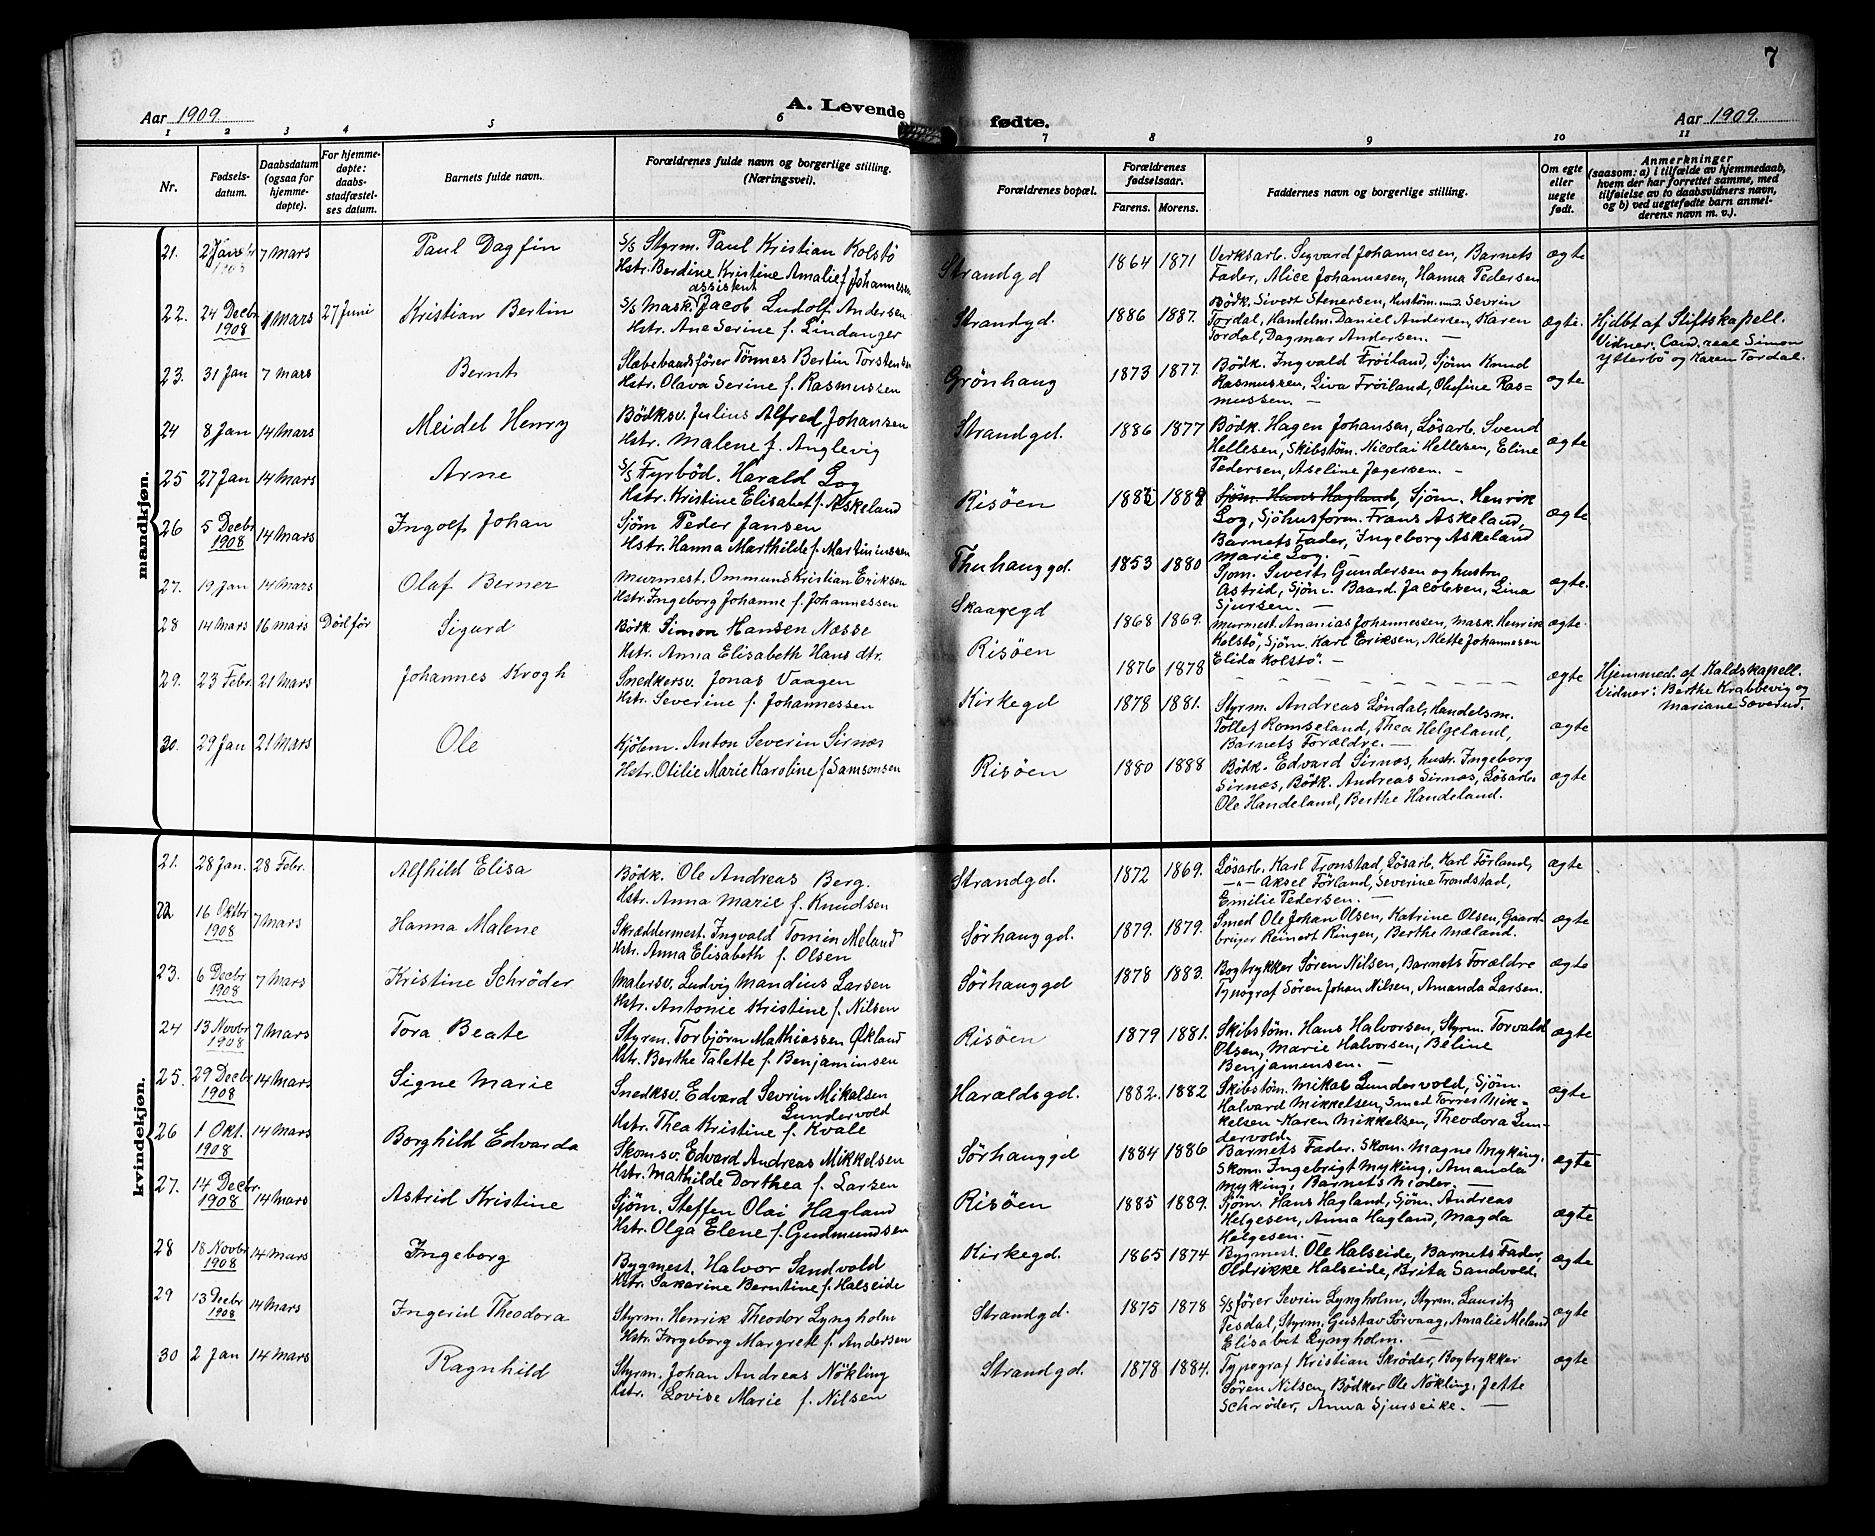 7
Aar 1909.
A. Levende fødte.
Aar 1909.
1 2 3 4 5 6 7 8 9 10 11
Nr.
Fødsels-
datum.
Daabsdatum
(ogsaa for
hjemme-
døpte).
For hjemme-
døpte:
daabs-
stadfæstel-
ses datum.
Barnets fulde navn.
Forældrenes fulde navn og borgerlige stilling.
(Næringsvei).
Forældrenes bopæl.
Forældrenes
fødselsaar.
Farens. Morens.
Faddernes navn og borgerlige stilling.
Om egte
eller
uegte
født.
Anmerkninger
(saasom: a) i tilfælde av hjemmedaab,
hvem der har forrettet samme, med
tilføielse av to daabsvidners navn,
og b) ved uegtefødte barn anmel-
derens navn m. v.).
mandkjøn.
21. 7 Mars Paul Dagfin
S/S Styrm. Paul Kristian Kolstø
Hstr. Berdine Kristine Amalie f. Johannessen
Strandgd 1864 1871
Verksarb. Sigvard Johannesen, Barnets
Fader, Alice Johannesen, Hanna Pedersen
ægte
22. 24 Decbr 1908 1 Mars 27 Juni Kristian Bertin
assistent
S/S Mask. Jacob Ludolf Andersen
Hstr. Ane Serine f. Lindanger
Strandgd. 1886 1887.
Bödk. Sivert Stenersen, Sevrin
Tordal, Handelm. Daniel Andersen, Karen
Tordal, Dagmar Andersen. —
ægte.
Hjdbt af Stiftskapell.
Vidner. Cand. real Simon
Ytterbö og Karen Tordal.
23. 31 Jan 7 Mars Bernt
Slæbebaadsfører Tönnes Bertin Torstensen
Hstr. Olava Serine f. Rasmussen
Grönhaug 1873 1877
Bödk. Ingvald Fröiland, Sjöm Knud
Rasmussen, Liva Fröiland, Olufine Ras-
mussen. —
ægte
24 8 Jan 14 Mars Meidel Henry
Bödksv. Julius Alfred Johansen
Hstr. Malene f. Anglevig
Strandgd. 1886 1877
Bödk. Hagen Johansen, Lösarb. Svend
Hellesen, Skibstöm. Nicolai Hellesen, Eline
Pedersen, Aseline Jegersen. —
ægte
25 27 Jan 14 Mars Arne
S/S Fyrböd. Harald Log
Hstr. Kristine Elisabet f. Askeland
Risöen
Sjöm. Hans Hagland, Sjöm. Henrik
Log, Sjöhusform. Frans Askeland,
Barnets Fader, Ingeborg Askeland
Marie Log. —
ægte
26 5 Decbr 1908 14 Mars Ingolf Johan
Sjöm Peder Jansen
Hstr. Hanna Marthilde f. Martininssen
Thuhauggd. 1853 1880
Sjöm. Sivert Gundersen og hustru
Astrid, Sjöm. Baard Jacobsen, Lina
Sjursen. —
ægte.
27. 19 Jan 14 Mars Olaf Berner
Murmest. Ommund Kristian Eriksen
Hstr. Ingeborg Johanne f. Johannessen
Skaaregd 1868 1869.
Murmest. Ananias Johannessen, Mask. Henrik
Kolstö, Sjöm. Karl Eriksen, Mette Johannesen
Elida Kolstö. —
ægte.
28 14 Mars 16 Mars Död för Sigurd
Bödk. Simon Hansen Næsse
Hstr. Anna Elisabeth Hans dtr.
Risöen 1876 1878
ægte
Hjemmed. af Kaldskapell.
Vidner: Berthe Krabbevig og
Mariane Soverud.
29. 23 Febr. 21 Mars Johannes Krogh
Snedkersv. Jonas Vaagen
Hstr. Severine f. Johannessen
Kirkegd 1878 1881.
Styrm. Andreas Löndal, Handelsm.
Tollef Romseland, Thea Helgeland,
Barnets Forældre. —
ægte
30. 29 Jan 21 Mars Ole
Kjölem. Anton Severin Sirnæs
Hstr. Otilie Marie Karoline f. Samsonsen
Risöen 1880 1888
Bödk. Edvard Sirnæs, hustr. Ingeborg
Sirnæs, Bödk. Andreas Sirnæs, Lösarb.
Ole Handeland, Berthe Handeland.
ægte
kvindekjøn.
21. 28 Jan. 28 Febr. Alfhild Elisa
Bödk. Ole Andreas Berg.
Hstr. Anna Marie f. Knudsen
Strandgd. 1872 1869.
Lösarb. Karl Tronstad, Lösarb. Karl Förland,
—"— Aksel Förland, Severine Trondstad,
Emilie Pedersen. —
ægte
22 16 Oktbr 1908 7 Mars Hanna Malene
Skræddermest. Ingvald Tomin Meland
Hstr. Anna Elisabeth f. Olsen
Sörhauggd. 1879. 1879.
Smed Ole Johan Olsen, Katrine Olsen, Gaard-
bruger Reinert Ringen, Berthe Mæland.
ægte
23. 6 Decbr 1908 7 Mars Kristine Schröder
Malersv. Ludvig Mandius Larsen
Hstr. Antonie Kristine f. Nilsen
Sörhauggd 1878 1883.
Bogtrykker Sören Nilsen, Barnets Forældre
Typograf Sören Johan Nilsen, Amanda Larsen.
ægte
24 13 Novbr 1908 7 Mars Tora Beate
Styrm. Torbjörn Mathiassen Økland
Hstr. Berthe Talette f. Benjaminsen
Risöen 1879 1881.
Skibstöm. Hans Halvorsen, Styrm. Torvald
Olsen, Marie Halvorsen, Beline
Benjamensen. —
ægte
25. 29 Decbr 1908 14 Mars Signe Marie
Snedksv. Edvard Sevrin Mikalsen
Lundervold
Hstr. Thea Kristine f. Kvale
Haraldsgd. 1882. 1882
Skibstöm. Mikal Lundervold, Sjöm.
Halvard Mikkelsen, Smed Torres Mik-
kelsen Karen Mikkelsen, Theodora Lun-
dervold.
ægte
26 1 Okt. 1908 14 Mars Borghild Edvarda
Skomsv. Edvard Andreas Mikkelsen
Hstr. Mathilde Dorthea f. Larsen
Sörhauggd 1884 1886
Barnets Fader. Skom. Magne Myking,
Skom. Ingebrigt Myking, Amanda
Myking, Barnets Moder. —
ægte
27. 14 Decbr. 1908 14 Mars Astrid Kristine
Sjöm. Steffen Olai Hagland
Hstr. Olga Elene f. Gudmundsen
Risöen 1885 1889.
Sjöm. Hans Hagland, Sjöm. Andreas
Helgesen, Anna Hagland, Magda
Helgesen. —
ægte
28 18 Novbr 1908 14 Mars Ingeborg
Bygmest. Halvor Sandvold
Hstr. Sakarine Berntine f. Halseide
Kirkegd. 1865 1874
Bygmest. Ole Halseide, Barnets Fader,
Oldrikke Halseide, Brita Sandvold.
ægte
29 13 Decbr 1908 14 Mars Ingerid Theodora
Styrm. Henrik Theodor Lyngholm
Hstr. Ingeborg Margret f. Andersen
Strandgd. 1875 1878
S/Sförer Sevrin Lyngholm, Styrm. Lauritz
Tesdal, Styrm. Gustav Sörvaag, Amalie Meland
Elisabet Lyngholm. —
ægte
30 2 Jan 14 Mars Ragnhild
Styrm. Johan Andreas Nökling
Hstr. Lovise Marie f. Nilsen
Strandgd. 1878 1884.
Typegraf Kristian Skröder, Bogtrykker
Sören Nilsen, Bödker Ole Nökling, Jette
Schröder, Anna Sjurseike. —
ægte